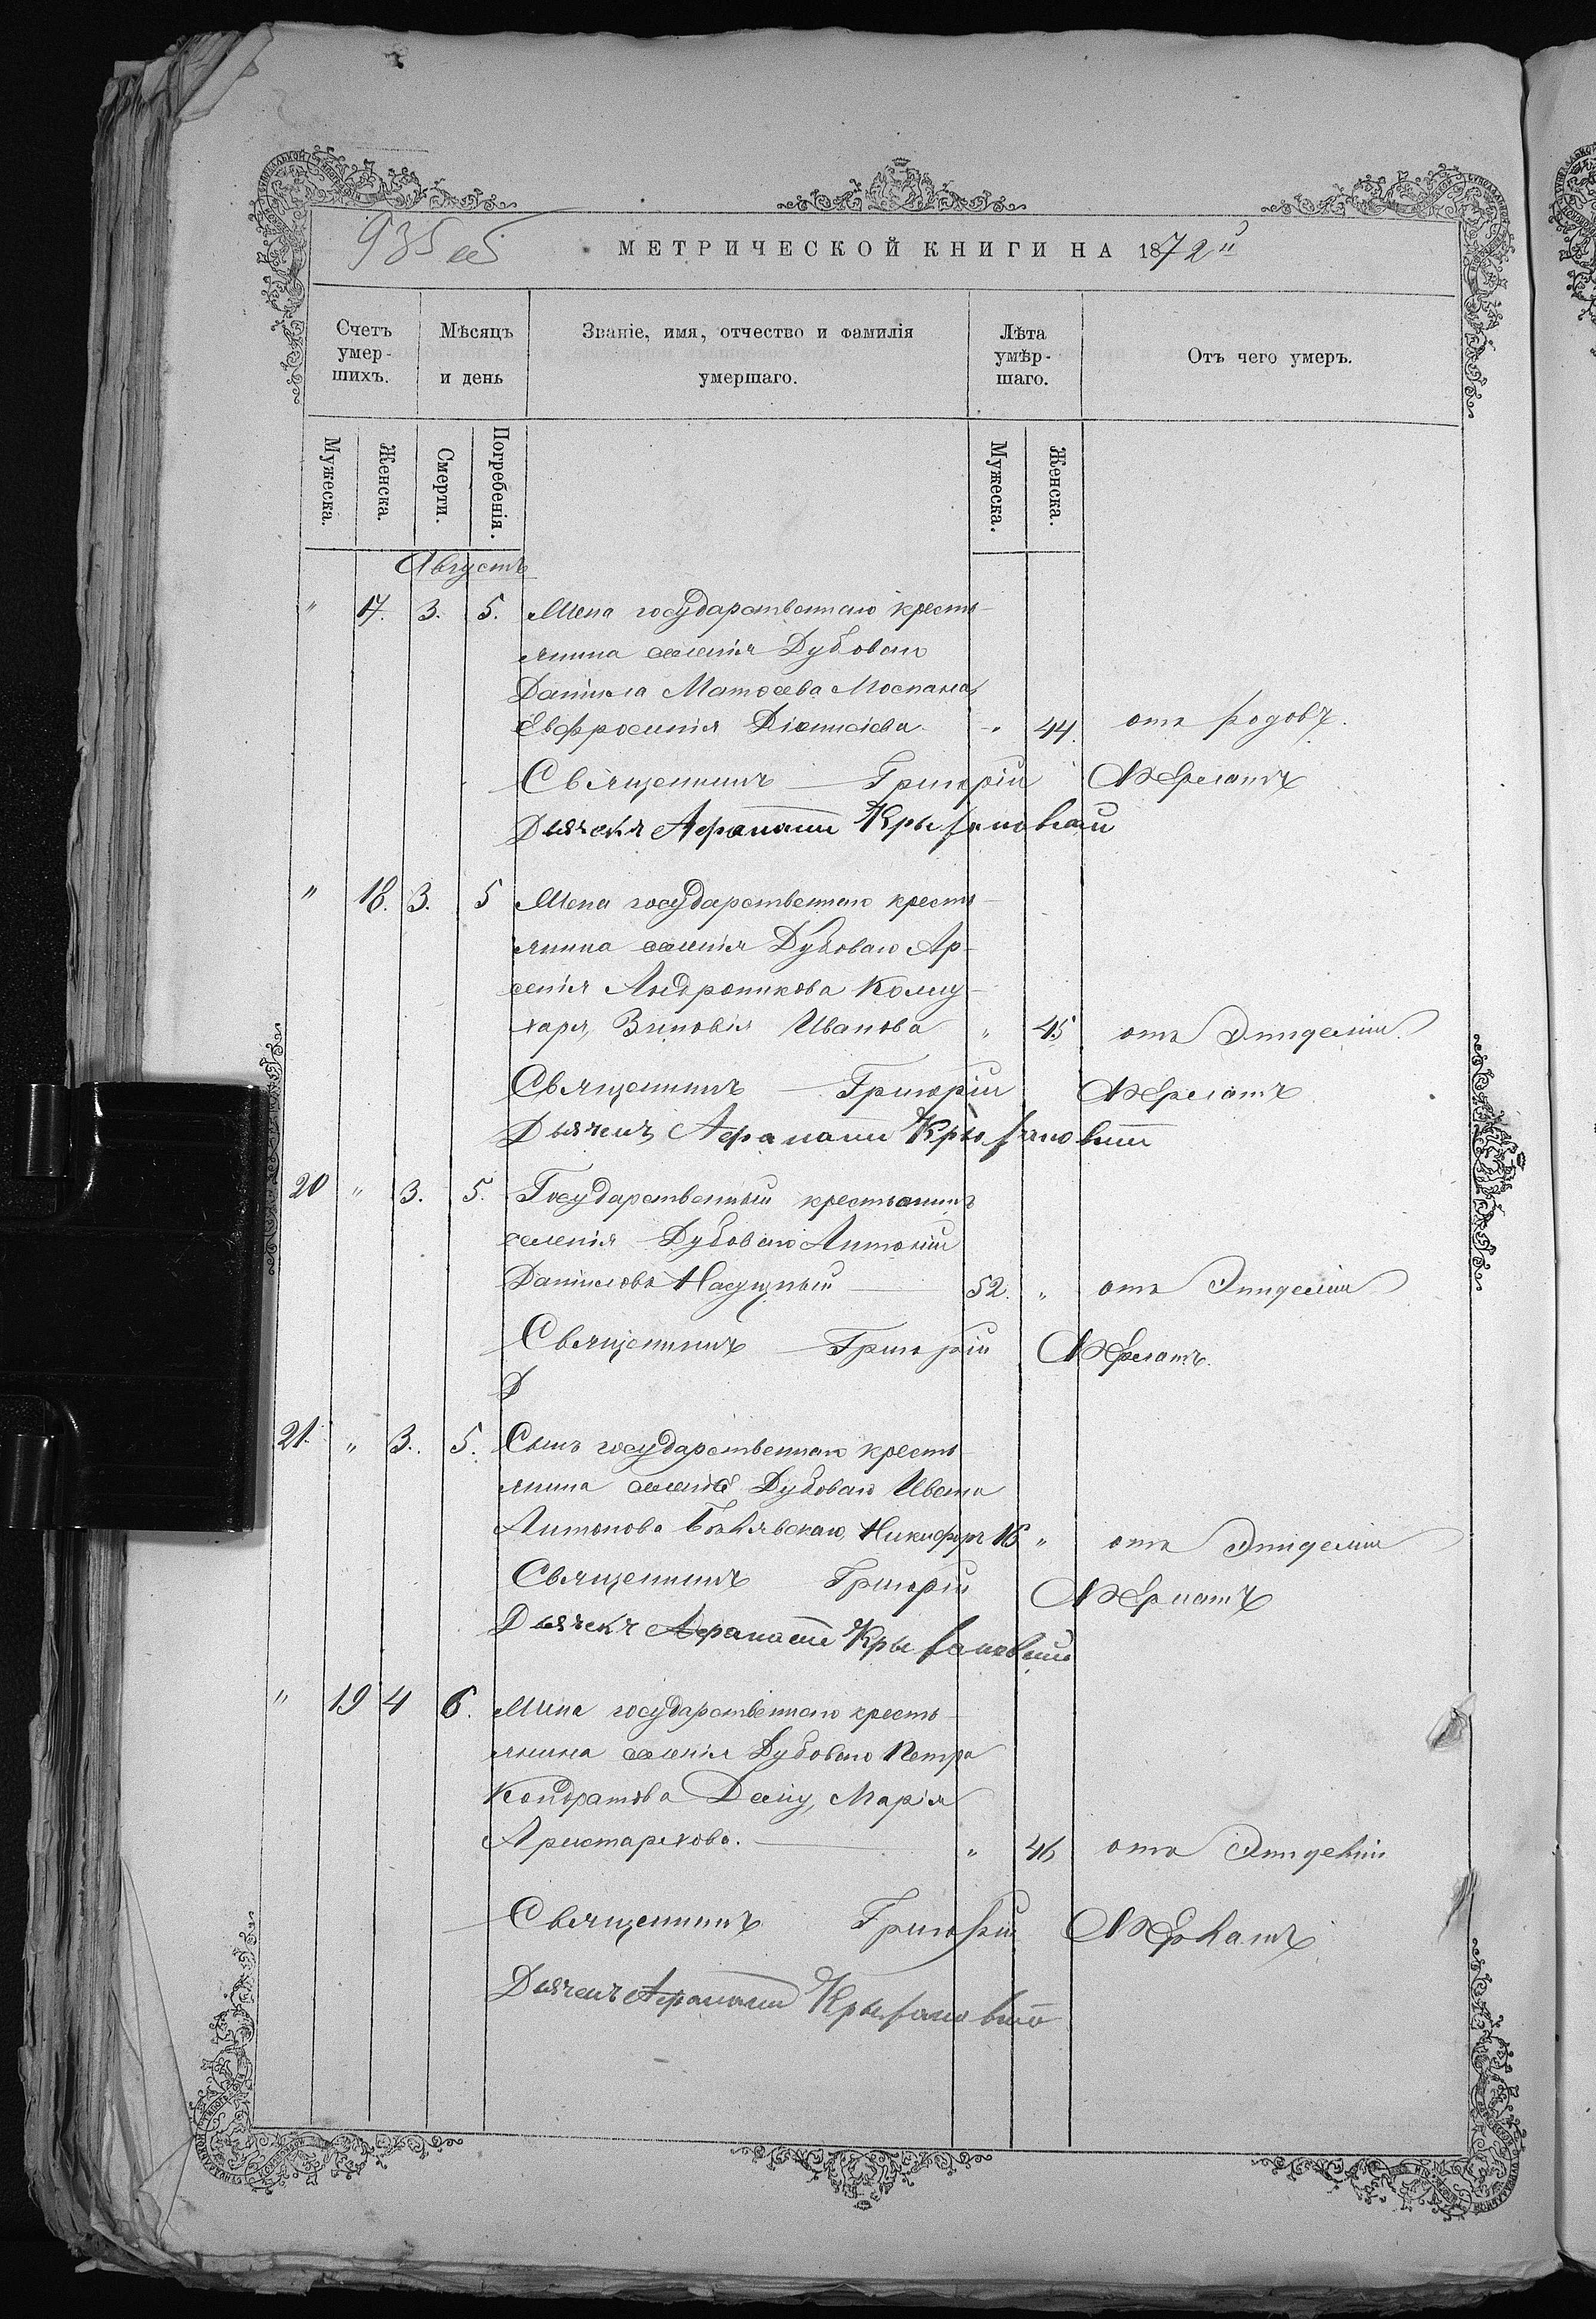 935 об
МЕТРИЧЕСКОЙ КНИГИ НА 1872й
Счетъ умер-шихъ.
Мѣсяцъ и день
Званіе, имя, отчество и фамилія умершаго.
Лѣта умѣр-шаго.
Отъ чего умеръ.
Мужеска. Женска. Смерти. Погребенія. Мужеска. Женска.
Августъ
" 17. 3. 5. Жена государственнаго кресть-
янина селенія Дубоваго
Даніила Матѳеева Моспана,
Евфросинія Діонисіева " 44. отъ родовъ.
Священникъ Григорій
Дьячекъ Афанасій Крыжановскій
" 18. 3. 5 Жена государственнаго кресть-
янина селенія Дубоваго Ар-
сенія Андроникова
Зиновія Иванова " 45 отъ Эпидеміи
Священникъ Григорій
Дьячекъ Афанасій Крыжановскій
20 " 3. 5. Государственный крестьянинъ
селенія Дубоваго Антоній
Даніиловъ Насущный 52. " отъ Эпидеміи
Священникъ Григорій
Д
21. " 3. 5. Сынъ государственнаго кресть-
янина селенія Дубоваго Ивана
Антонова Никифоръ 16 " отъ Эпидеміи
Священникъ Григорій
Дьячекъ Афанасій Крыжановскій
" 19 4 6. Жена государственнаго кресть-
янина селенія Дубоваго Петра
Кондратова Марія
Аристархова. " 46 отъ Эпидеміи
Священникъ Григорій
Дьячекъ Афанасій Крыжановскій